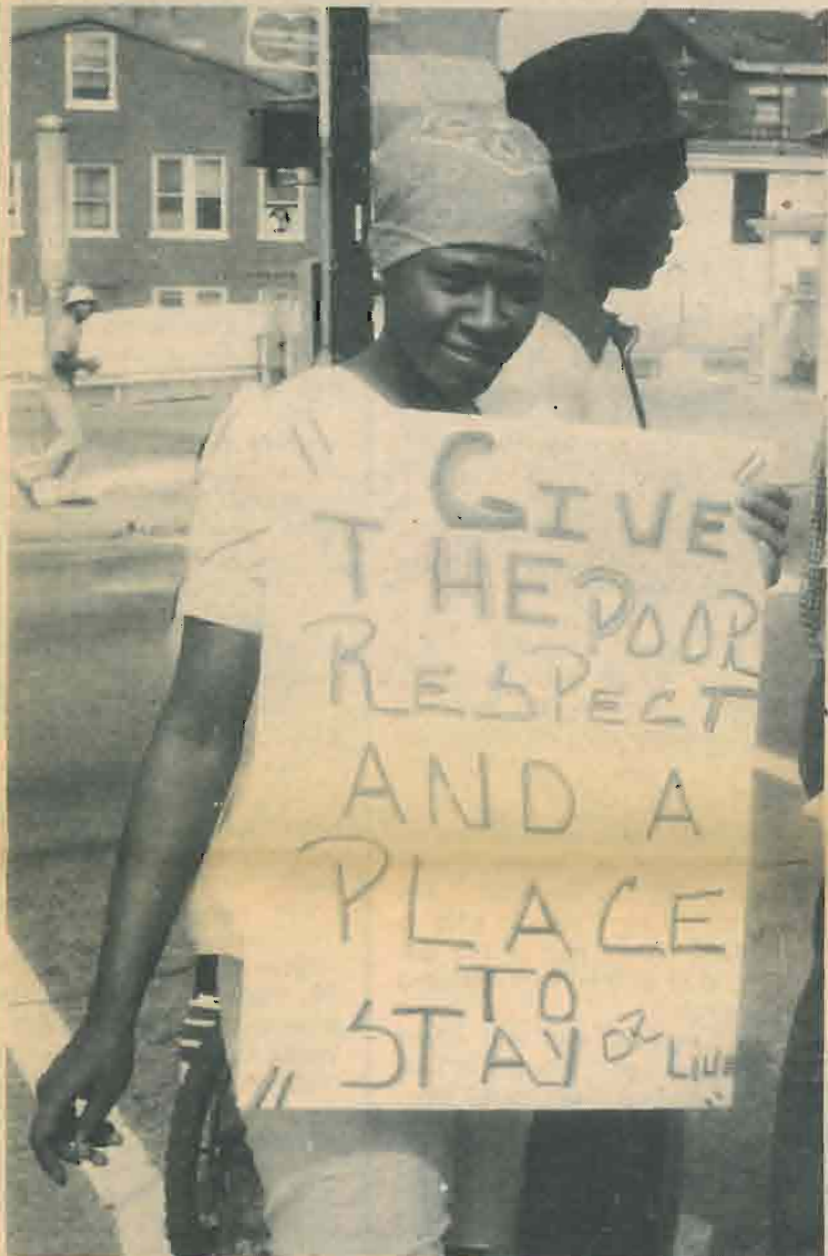 " GIVE "
THE POOR
RESPECT
AND A
PLACE
TO
STAY or LIVE
" "